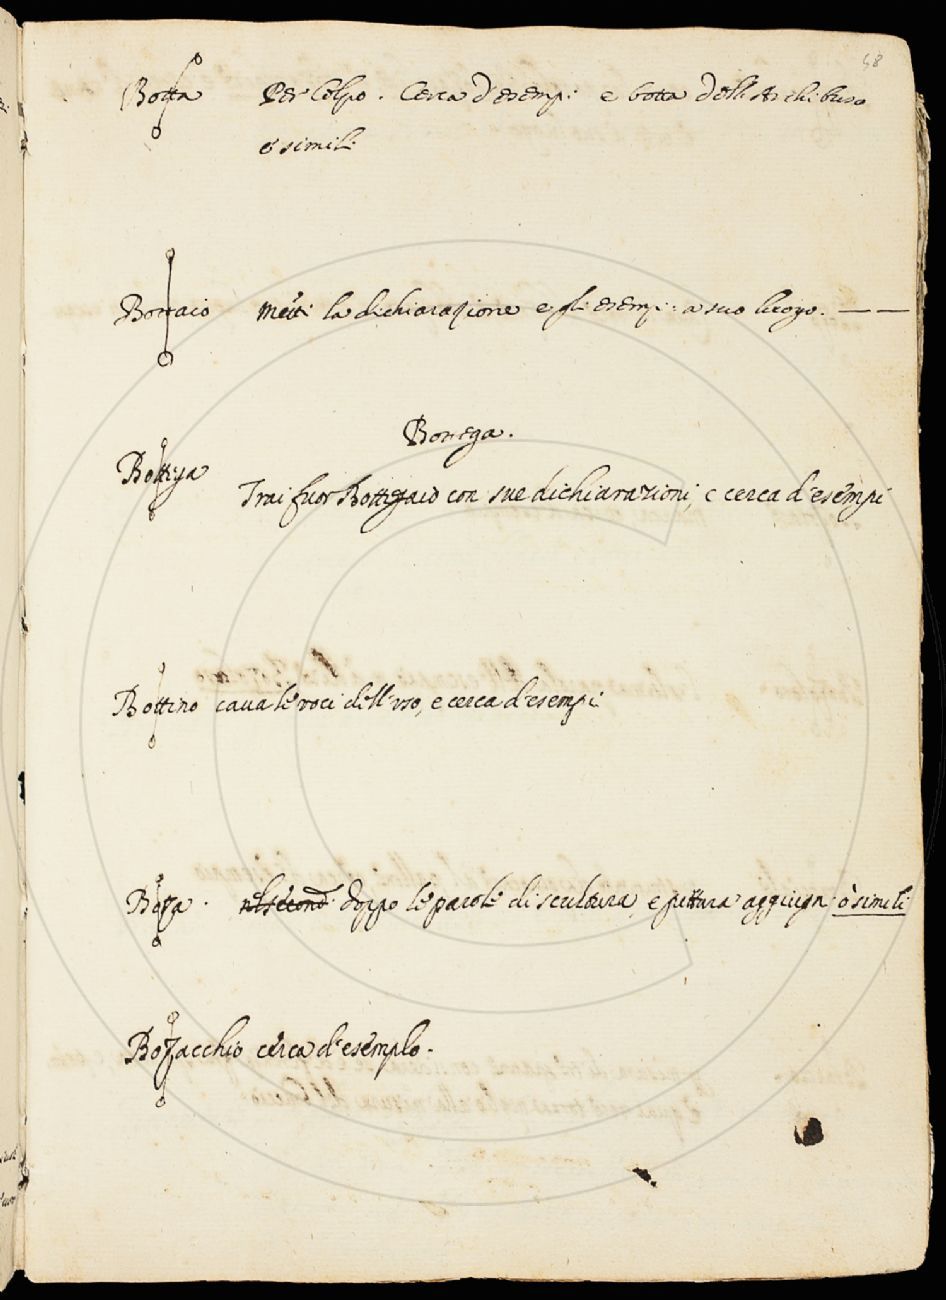 68
Botta Per Colpo. Cerca d'esempi e botta dell'Archibuso
o simili
Bottaio metti la dichiarazione e gli esempi: a suo luogo. — —
Bottega.
Bottiga Trai fuor Bottegaio con sue dichiarazioni, e cerca d'esempi
Bottino caua le voci dell'uso, e cerca d'esempi
Boza. nel second. doppo le parole di scultura, e pittura aggiugn: ò simili
Bozacchio cerca d'esemplo.